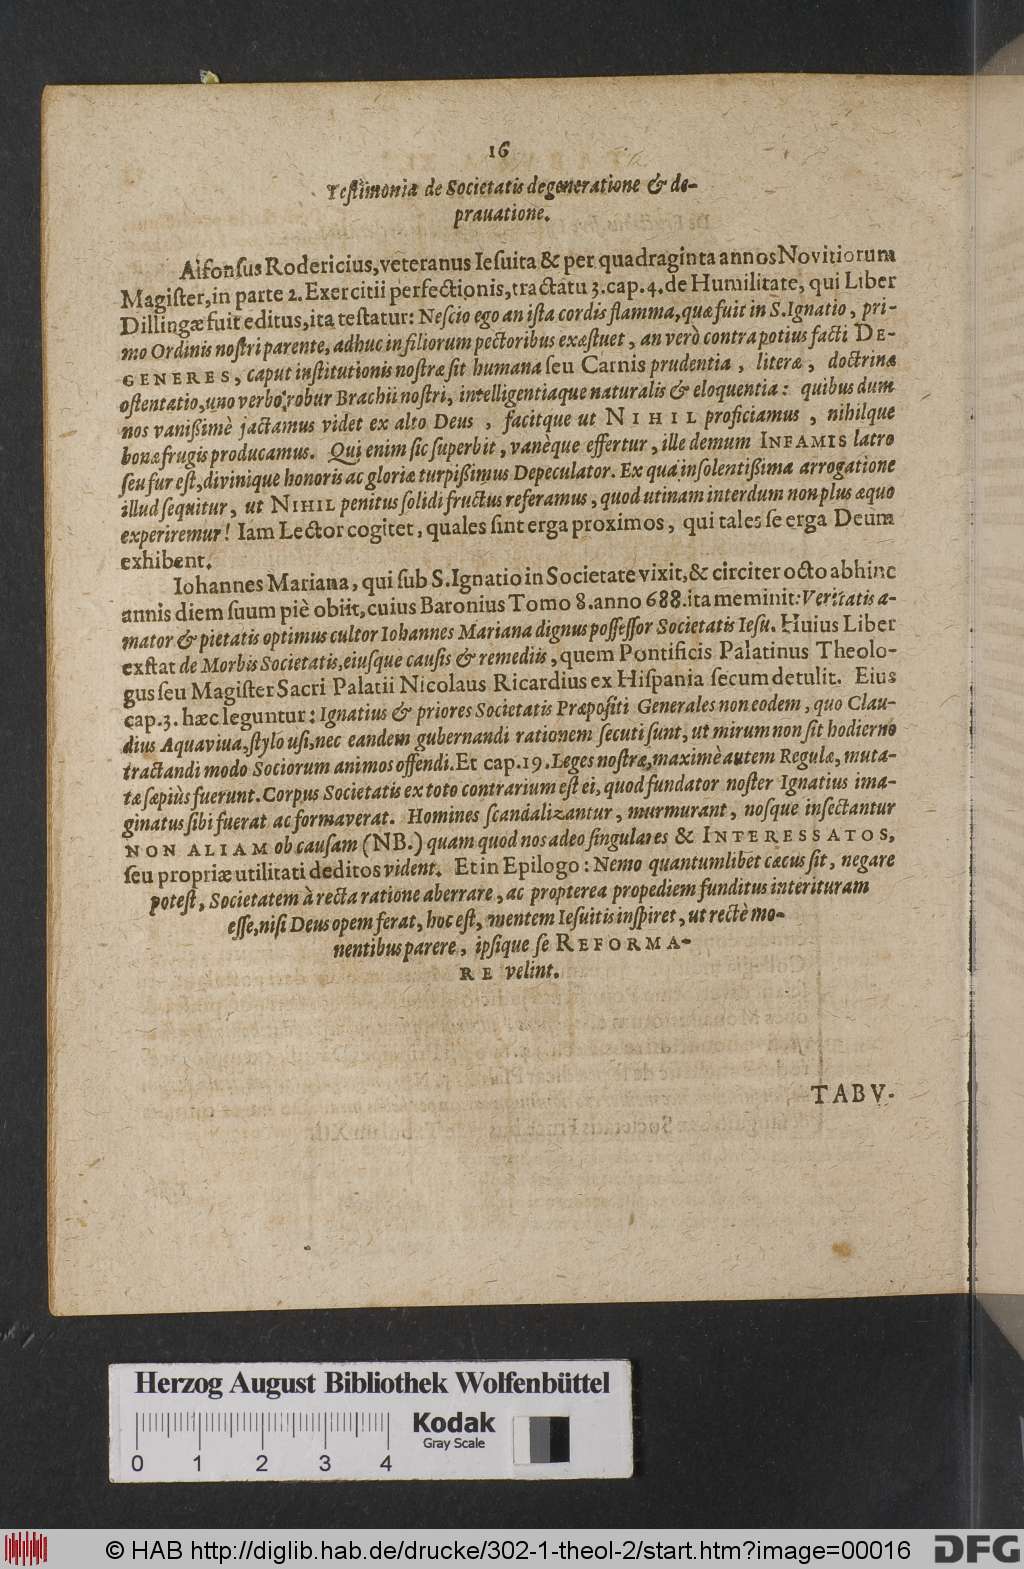 16
Testimonia de Societatis degeneratione & de-
prauatione.
Alfonsus Rodericius, veteranus Iesuita & per quadraginta annos Novitiorum
Magister, in parte 2. Exercitii perfectionis, tractatu 3. cap. 4. de Humilitate, qui Liber
Dillingæ fuit editus, ita testatur: Nescio ego an ista cordis flamma, quæ fuit in S. Ignatio, pri-
mo Ordinis nostri parente, adhuc in filiorum pectoribus exæstuet, an verò contra potius facti DE-
GENERES, caput institutionis nostræ sit humana seu Carnis prudentia, literæ, doctrinæ
ostentatio, uno verbo, robur Brachii nostri, intelligentiaque naturalis & eloquentia: quibus dum
nos vanißimè jactamus videt ex alto Deus, facitque ut NIHIL proficiamus, nihilque
bonæ frugis producamus. Qui enim sic superbit, vanèque effertur, ille demum INFAMIS latro
seu fur est, divinique honoris ac gloriæ turpißimus Depeculator. Ex qua insolentißima arrogatione
illud sequitur, ut NIHIL penitus solidi fructus referamus, quod utinam interdum non plus æquo
experiremur! Iam Lector cogitet, quales sint erga proximos, qui tales se erga Deum
exhibent.
Iohannes Mariana, qui sub S. Ignatio in Societate vixit, & circiter octo abhinc
annis diem suum piè obiit, cuius Baronius Tomo 8. anno 688. ita meminit: Veritatis a-
mator & pietatis optimus cultor Iohannes Mariana dignus possessor Societatis Iesu. Huius Liber
exstat de Morbis Societatis, eiusque causis & remediis, quem Pontificis Palatinus Theolo-
gus seu Magister Sacri Palatii Nicolaus Ricardius ex Hispania secum detulit. Eius
cap. 3. hæc leguntur: Ignatius & priores Societatis Præpositi Generales non eodem, quo Clau-
dius Aquaviva, stylo usi, nec eandem gubernandi rationem secuti sunt, ut mirum non sit hodierno
tractandi modo Sociorum animos offendi. Et cap. 19. Leges nostræ, maximè autem Regulæ, muta-
tæ sæpiùs fuerunt. Corpus Societatis ex toto contrarium est ei, quod fundator noster Ignatius ima-
ginatus sibi fuerat ac formaverat. Homines scandalizantur, murmurant, nosque insectantur
NON ALIAM ob causam (NB.) quam quod nos adeo singulares & INTERESSATOS,
seu propriæ utilitati deditos vident. Et in Epilogo: Nemo quantumlibet cæcus sit, negare
potest, Societatem à recta ratione aberrare, ac propterea propediem funditus interituram
esse, nisi Deus opem ferat, hoc est, mentem Iesuitis inspiret, ut rectè mo-
nentibus parere, ipsique se REFORMA-
RE velint.
TABV-
Herzog August Bibliothek Wolfenbüttel
Kodak
Gray Scale
0 1 2 3 4
© HAB http://diglib.hab.de/drucke/302-1-theol-2/start.htm?image=00016
DFG